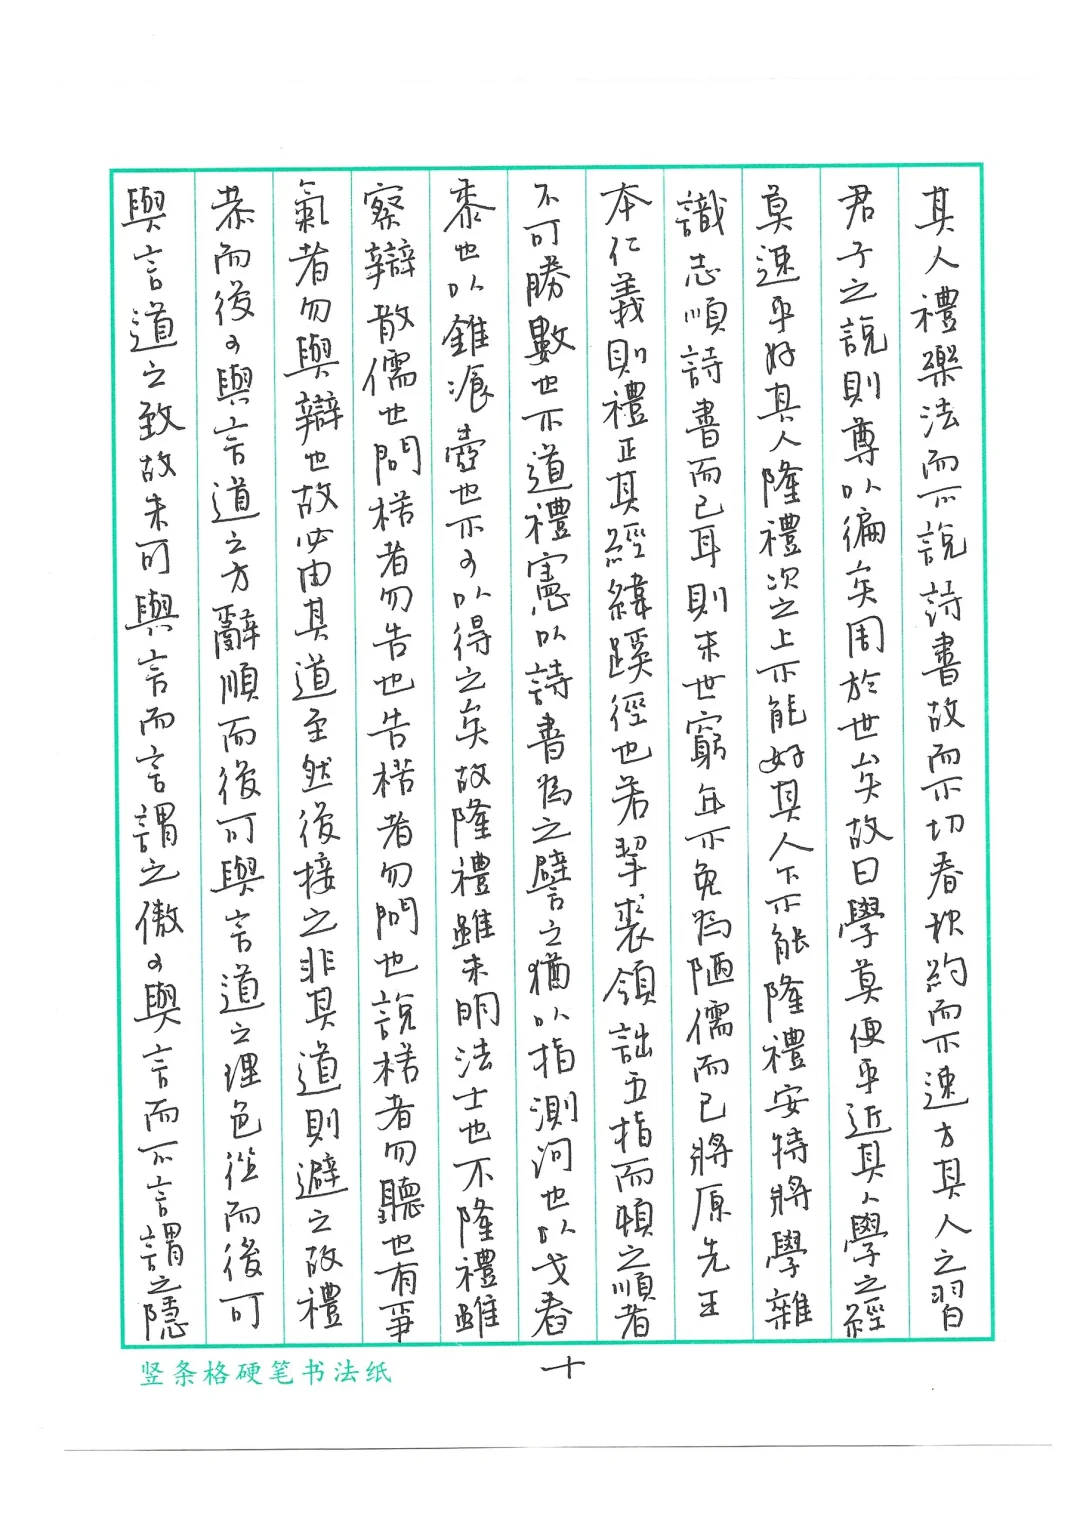 其人禮樂法而不說詩書故而不切春秋約而不速方其人之習
君子之說則尊以徧矣周於世矣故曰學莫便乎近其人學之經
莫速乎好其人隆禮次之上不能好其人下不能隆禮安特將學雜
識志順詩書而已耳則末世窮年不免為陋儒而已將原先王
本仁義則禮正其經緯蹊徑也若挈裘領詘五指而頓之順者
不可勝數也不道禮憲以詩書為之譬之猶以指測河也以戈舂
黍也以錐飡壺也不可以得之矣故隆禮雖未明法士也不隆禮雖
察辯散儒也問楛者勿告也告楛者勿問也說楛者勿聽也有爭
氣者勿與辯也故必由其道至然後接之非其道則避之故禮
恭而後可與言道之方辭順而後可與言道之理色從而後可
與言道之致故未可與言而言謂之傲可與言而不言謂之隱
竖条格硬笔书法纸
十